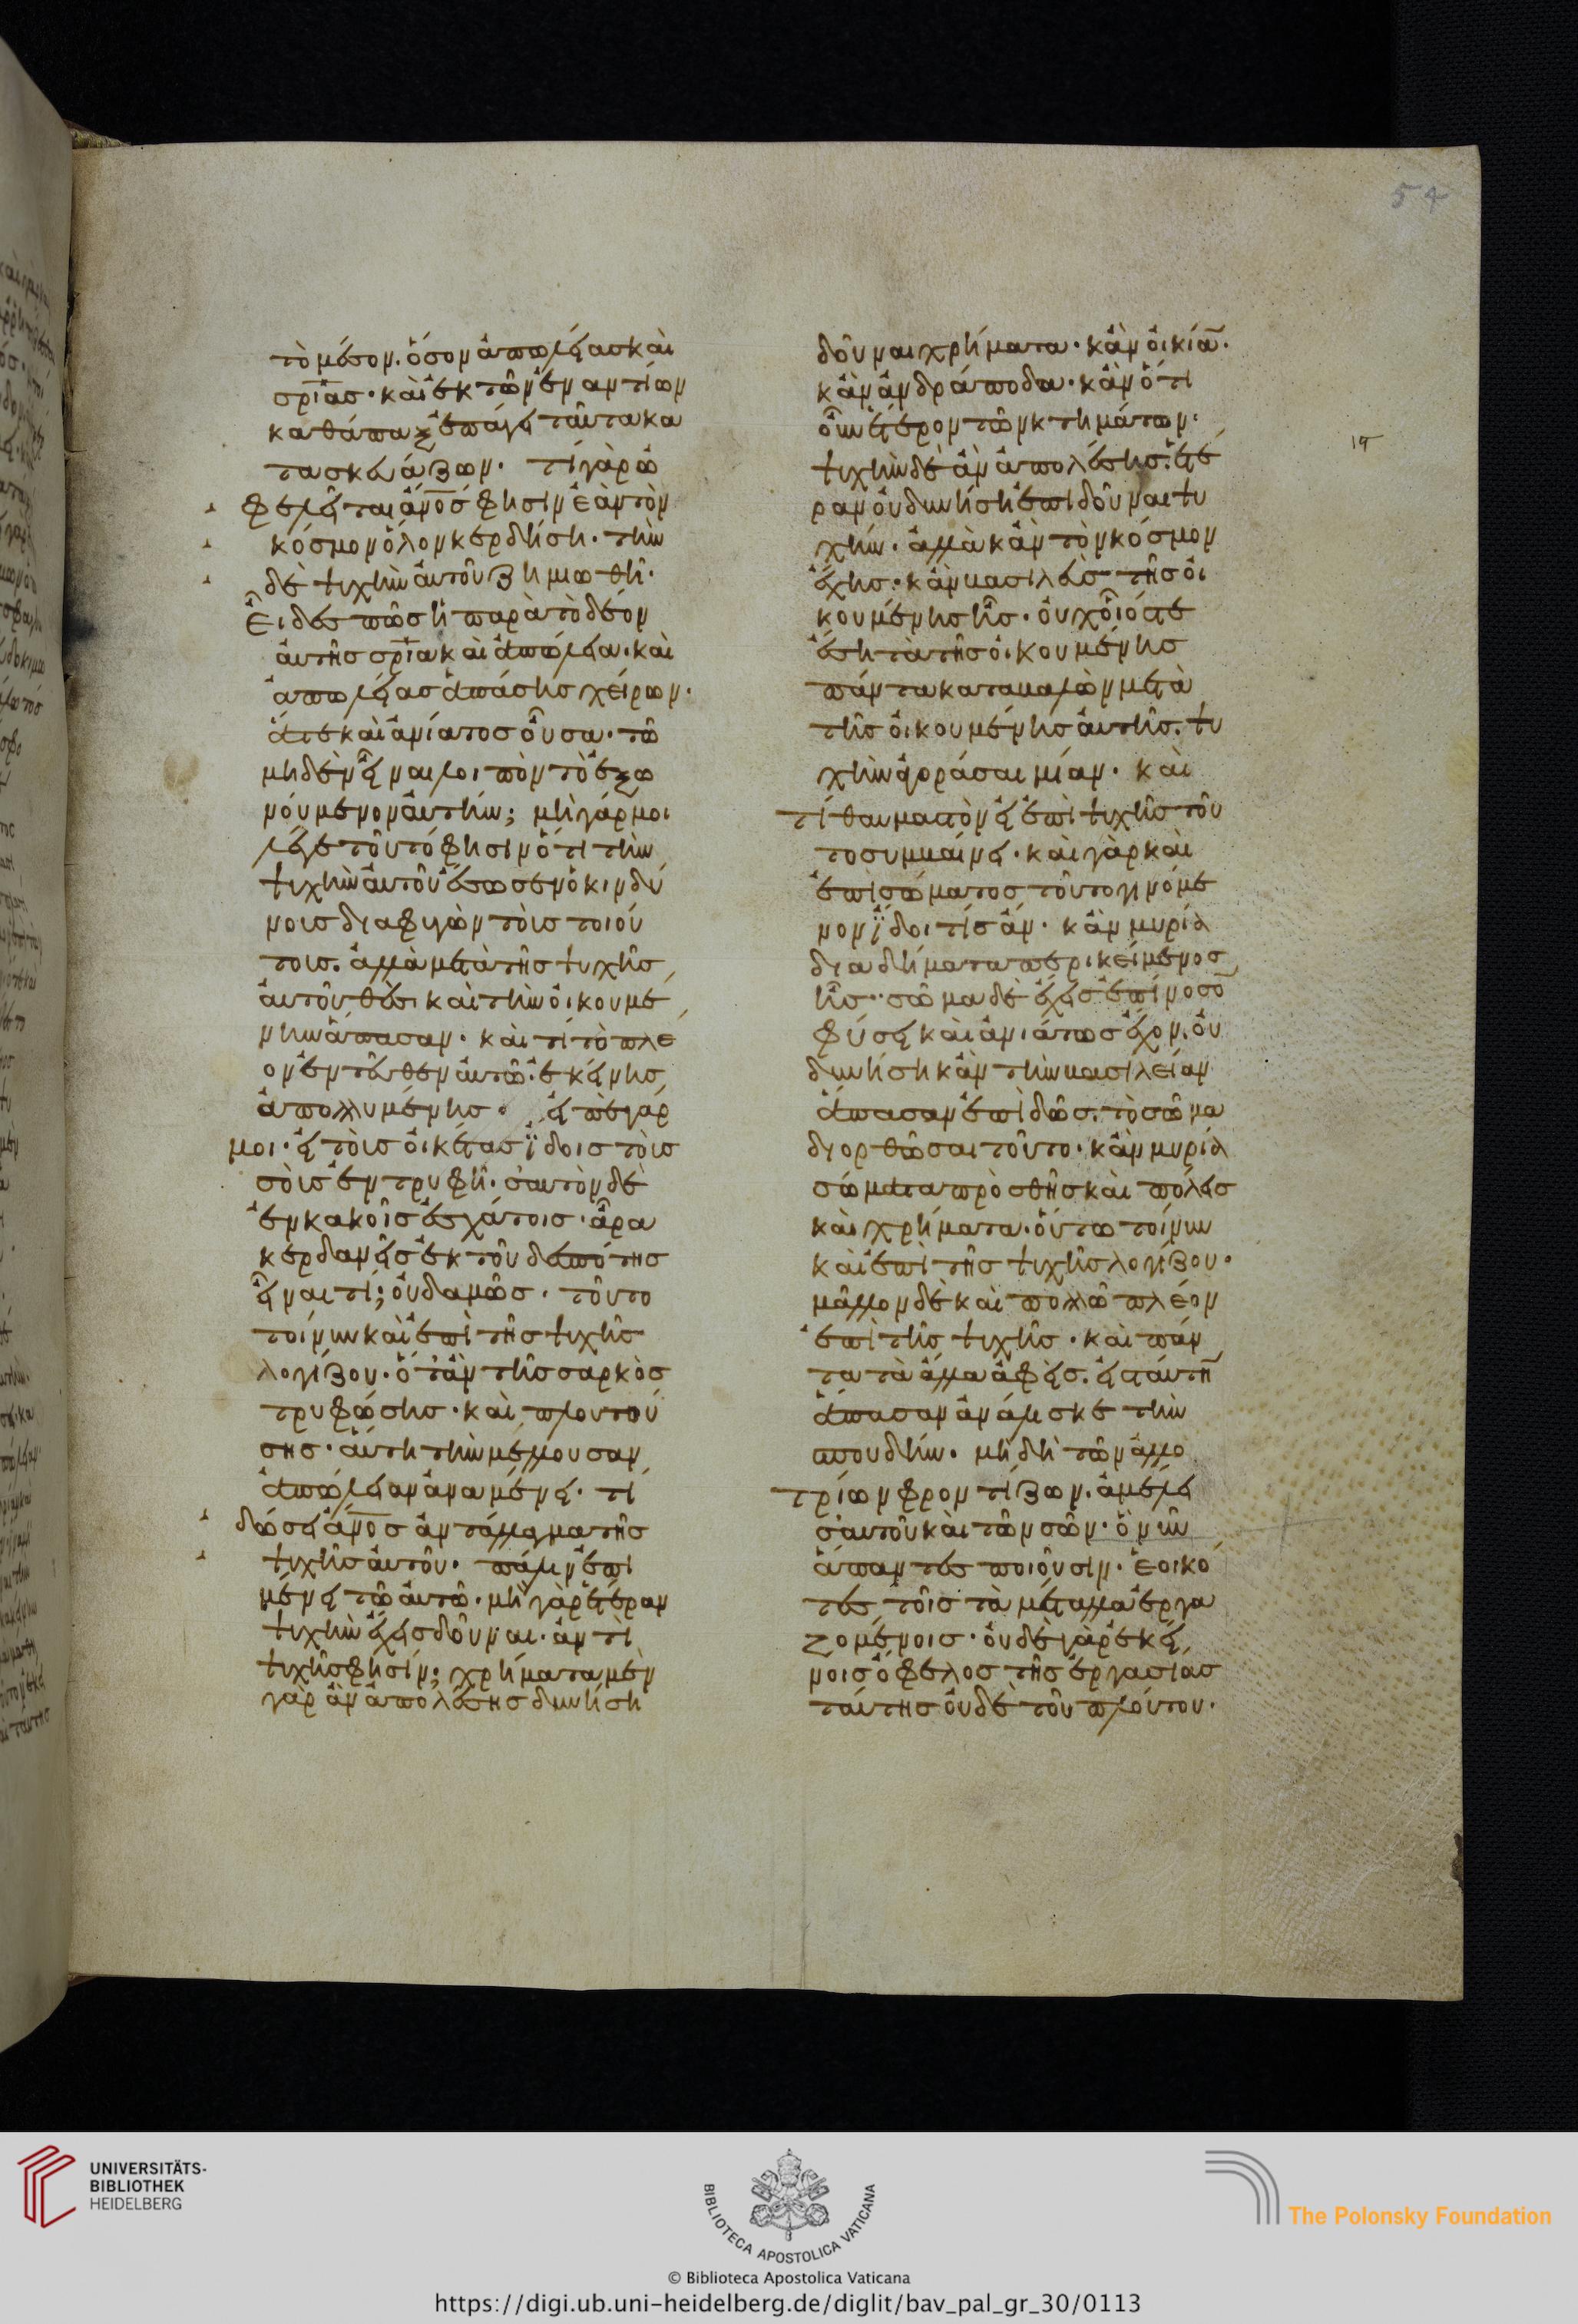 54
τὸ μέσον. ὅσον ἀπωλείας καὶ
σρ̅ίας· καὶ ἐκ τῶν ἐναντίων
καθάπαξ ἐπάγει ταῦτα κα
τασκευάζων. τί γὰρ ὠ
φελεῖται ἄν̅ος φησὶν ἐὰν τὸν
κόσμον ὅλον κερδήση. τὴν
δὲ ψυχὴν αὐτοῦ ζημιωθῆ·
Εἶδες πῶς ἡ παρὰ τὸ δέον
αὐτῆς σρ̅ία καὶ ἀπώλεια. καὶ
ἀπωλείας ἁπάσης χείρων.
ἅτε καὶ ἀνίατος οὖσα. τῶ
μηδὲν εἶναι λοιπὸν τὸ ἐξω
νούμενον αὐτήν; μὴ γάρ μοι
λέγε τοῦτό φησιν ὅτι τὴν
ψυχὴν αὐτοῦ ἔσωσεν ὁ κινδύ
νοις διαφυγὼν τοῖς τοιού
τοις. ἀλλὰ μετὰ τῆς ψυχῆς
αὐτοῦ θὲς καὶ τὴν οἰκουμέ
νην ἅπασαν. καὶ τί τὸ πλέ
ον ἐντεῦθεν αὐτῶ. ἐκείνης
ἀπολλυμένης. εἰπὲ γάρ
μοι. εἰ τοὺς οἰκέτας ἴδοις τοὺς
σοὺς ἐν τρυφῆ. σαυτὸν δὲ
ἐν κακοῖς ἐσχάτοις. ἆρα
κερδανεῖς ἐκ τοῦ δεσπότης
εἶναί τι; οὐδαμῶς. τοῦτο
τοίνυν καὶ ἐπὶ τῆς ψυχῆς
λογίζου. ὅτ' ἂν τῆς σαρκὸς
τρυφώσης. καὶ πλουτού
σης. αὕτη τὴν μέλλουσαν
ἀπώλειαν ἀναμένει. τί
δώσει ἄν̅ος ἀντάλλαγμα τῆς
ψυχῆς αὐτοῦ. πάλιν ἐπι
μένει τῶ αὐτῶ. μὴ γὰρ ἑτέραν
ψυχὴν ἔχεις δοῦναι. ἀντὶ
ψυχῆς φησίν; χρήματα μὲν
γὰρ ἂν ἀπολέσης δυνήση
δοῦναι χρήματα. κἂν οἰκία̅.
κἂν ἀνδράποδα. κἂν ὅτι
οὖν ἕτερον τῶν κτημάτων.
ψυχὴν δὲ ἂν ἀπολέσης. ἑτέ
ραν οὐ δυνήση ἐπιδοῦναι ψυ
χήν. ἀλλὰ κἂν τὸν κόσμον
ἔχης. κἂν βασιλεὺς τῆς οἰ
κουμένης ἦς. οὐχ οἷός τε
ἔση τὰ τῆς οἰκουμένης
πάντα καταβαλὼν μετὰ
τῆς οἰκουμένης αὐτῆς. ψυ
χὴν ἀγοράσαι μίαν. καὶ
τί θαυμαστὸν εἰ ἐπὶ ψυχῆς τοῦ
το συμβαίνει. καὶ γὰρ καὶ
ἐπὶ σώματος τοῦτο γινόμε
νον ἴδοι τίς ἄν. κἂν μυρία
διαδήματα περικείμενος
ἦς. σῶμα δὲ ἔχεις ἐπίνοσο̅
φύσει καὶ ἀνιάτως ἔχον. οὐ
δυνήση κἂν τὴν βασιλείαν
ἅπασαν ἐπιδῶς. τὸ σῶμα
διορθῶσαι τοῦτο. κἂν μυρία
σώματα προσθῆς καὶ πόλεις
καὶ χρήματα. οὕτω τοίνυν
καὶ ἐπὶ τῆς ψυχῆς λογίζου.
μᾶλλον δὲ καὶ πολλῶ πλέον
ἐπὶ τῆς ψυχῆς. καὶ πάν
τα τὰ ἄλλα ἀφεὶς. εἰς ταύτη̅
ἅπασαν ἀνάλισκε τὴν
σπουδήν. μὴ δὴ τῶν ἀλλο
τρίων φροντίζων. ἀμέλει
σαυτοῦ καὶ τῶν σῶν. ὃ νῦν
ἅπαντες ποιοῦσιν. ἐοικό
τες τοῖς τὰ μέταλλα ἐργα
ζομένοις. οὐδὲ γὰρ ἐκεί
νοις ὄφελος τῆς ἐργασίας
ταύτης οὐδὲ τοῦ πλούτου.
UNIVERSITÄTS-
BIBLIOTHEK
HEIDELBERG
BIBLIOTECA APOSTOLICA VATICANA
The Polonsky Foundation
© Biblioteca Apostolica Vaticana
https://digi.ub.uni-heidelberg.de/diglit/bav_pal_gr_30/0113